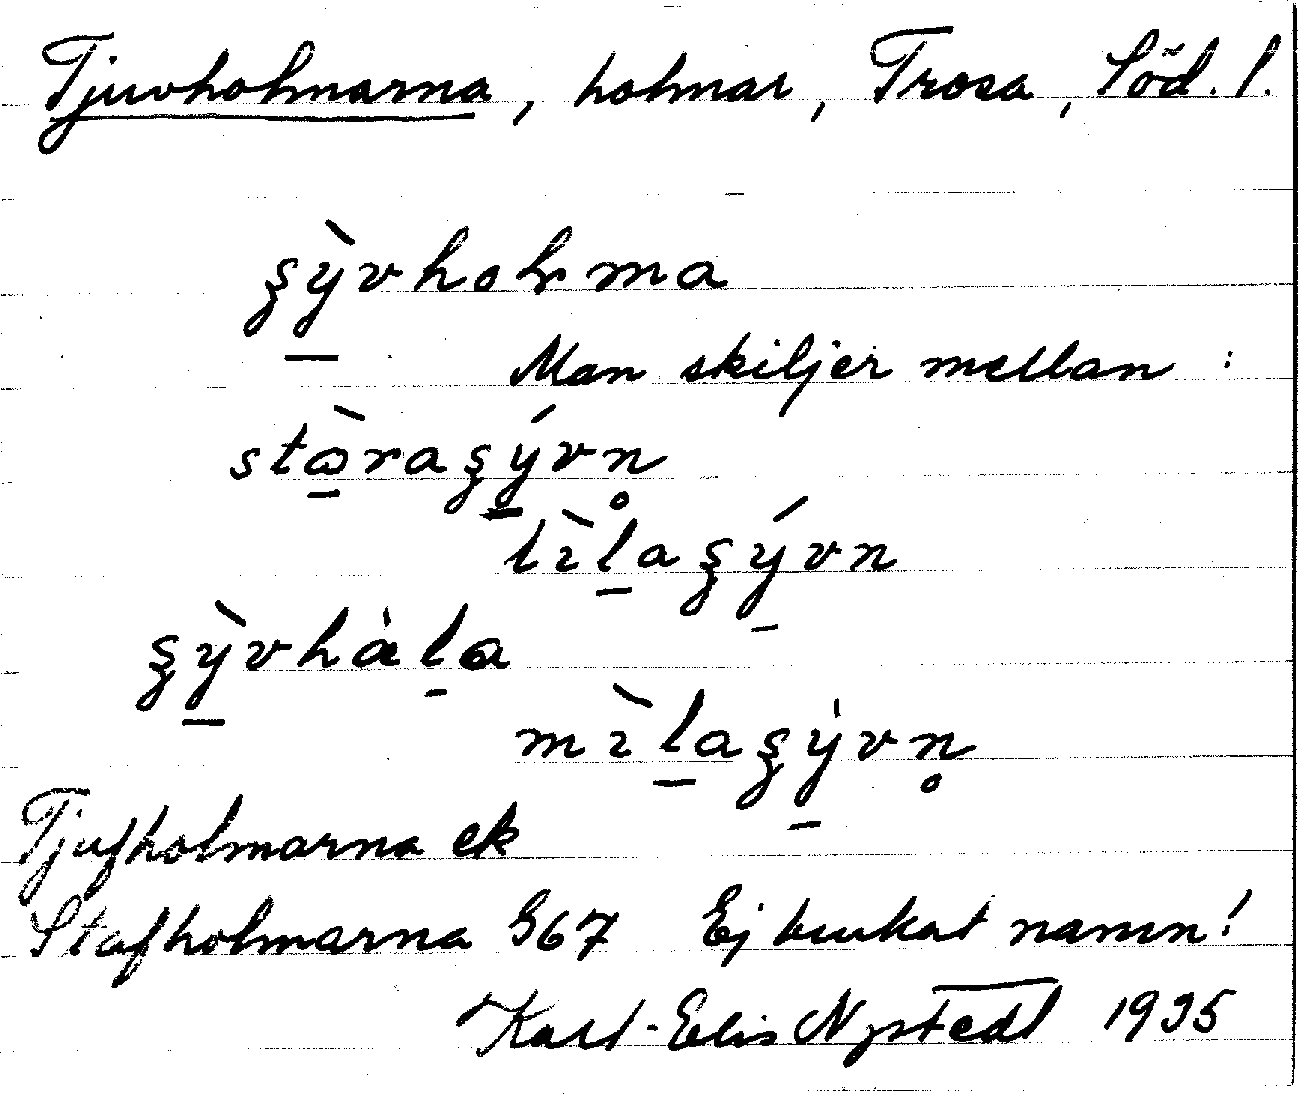 Tjuvholmarna, holmar, Trosa, Söd. l.
ʂỳ̠vholma
Man skiljer mellan :
stɷ̠̀raʂý̠vn̥
lɪ̀l̠aʂý̠vn
ʂỳ̠vhàl̠a
mɪ̀l̠aʂý̠vn̥
Tjufholmarna ek
Stafholmarna G67 Ej brukat namn!
Karl-Elis Nystedt 1935